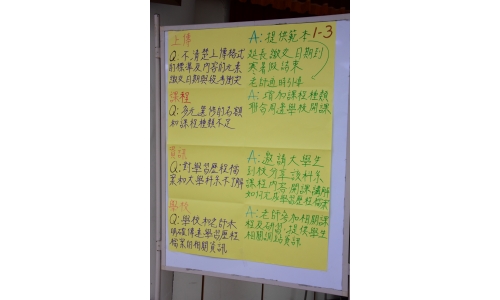 上傳
Q:不清楚上傳格式
的標準及內容的元素
繳交日期與段考衝突
A:提供範本1-3
延長繳交日期到
寒暑假結束
老師適時引導
課程
Q:多元選修的名額
和課程種類不足
A:增加課程種類
聯合周邊學校開課
資訊
Q:對學習歷程檔
案和大學科系不了解
A:邀請大學生
到校分享該科系
課程內容 開課講解
如何完成學習歷程檔案
學校
Q:學校和老師未
明確傳達學習歷程
檔案的相關資訊
A:老師參加相關課
程及研習,提供學生
相關諮詢資訊